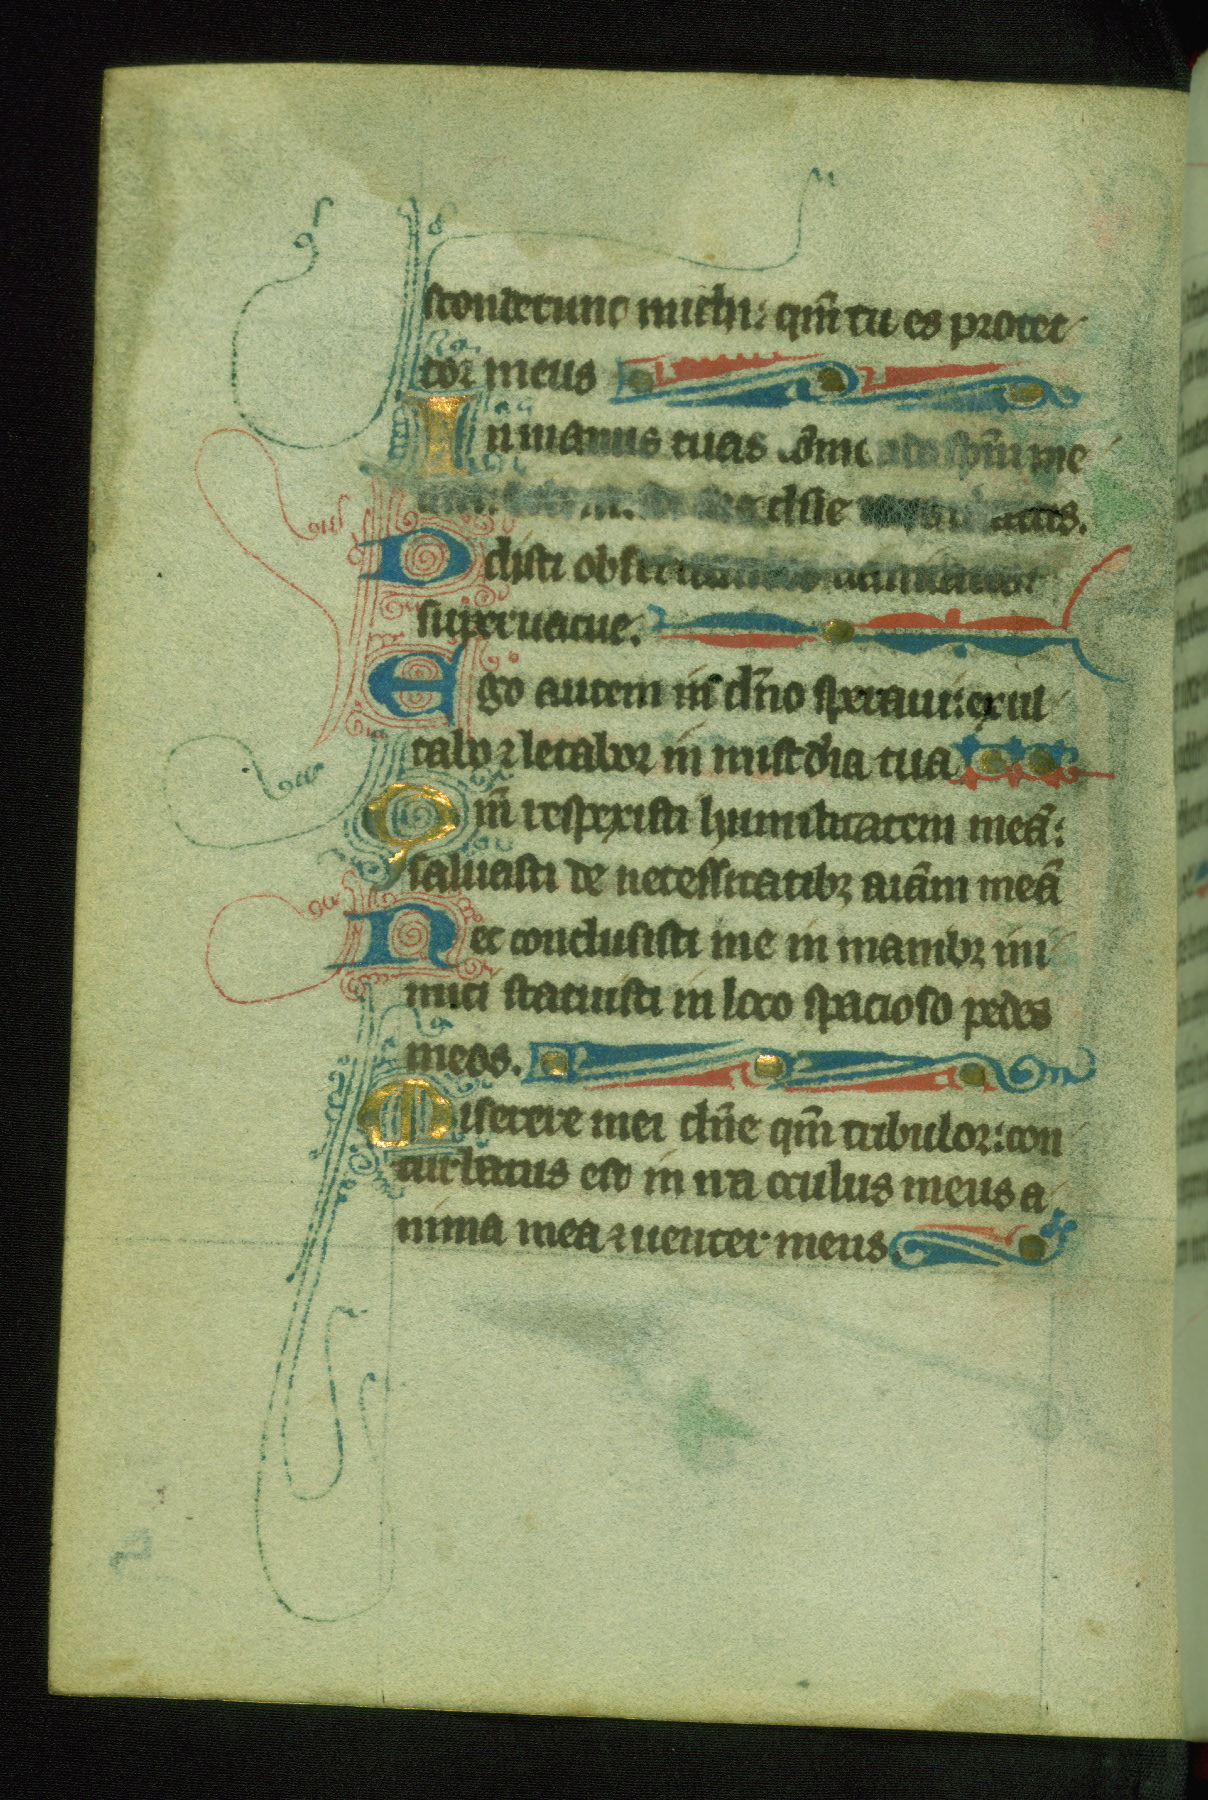 sconderunt michi: qm̄ tu es protec
tor meus
In manus tuas spm̄ me
dn̄e
Odisti obseruantes uanitates
superuacue.
Ego autem in dn̄o speraui: exul
tabo ⁊ letabor in mis̄cdia tua
Qm̄ respexisti humilitatem meā:
saluasti de necessitatibꝫ aīam meā
Nec conclusisti me in manibꝫ ini
mici statuisti in loco spacioso pedes
meos.
Miserere mei dn̄e qm̄ tribulor: con
turbatus est in ira oculus meus a
nima mea ⁊ uenter meus.